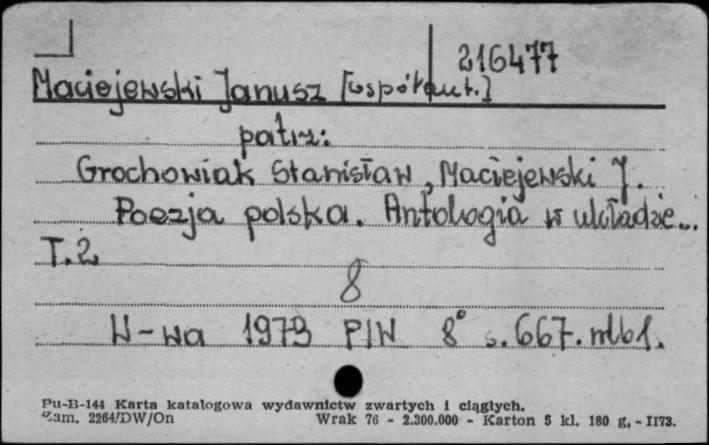 216477
Maciejewski Janusz [współaut.]
patrz:
Grochowiak Stanisław, Maciejewski J.
Poezja polska. Antologia w układzie...
T.2
8
W-wa 1973 PIW 8° s. 667. nlb 1.
Pu-B-144 Karta katalogowa wydawnictw zwartych i ciągłych.
Zam. 2264/DW/On Wrak 76 - 2.300.000 - Karton 5 kl. 180 g, - II73.